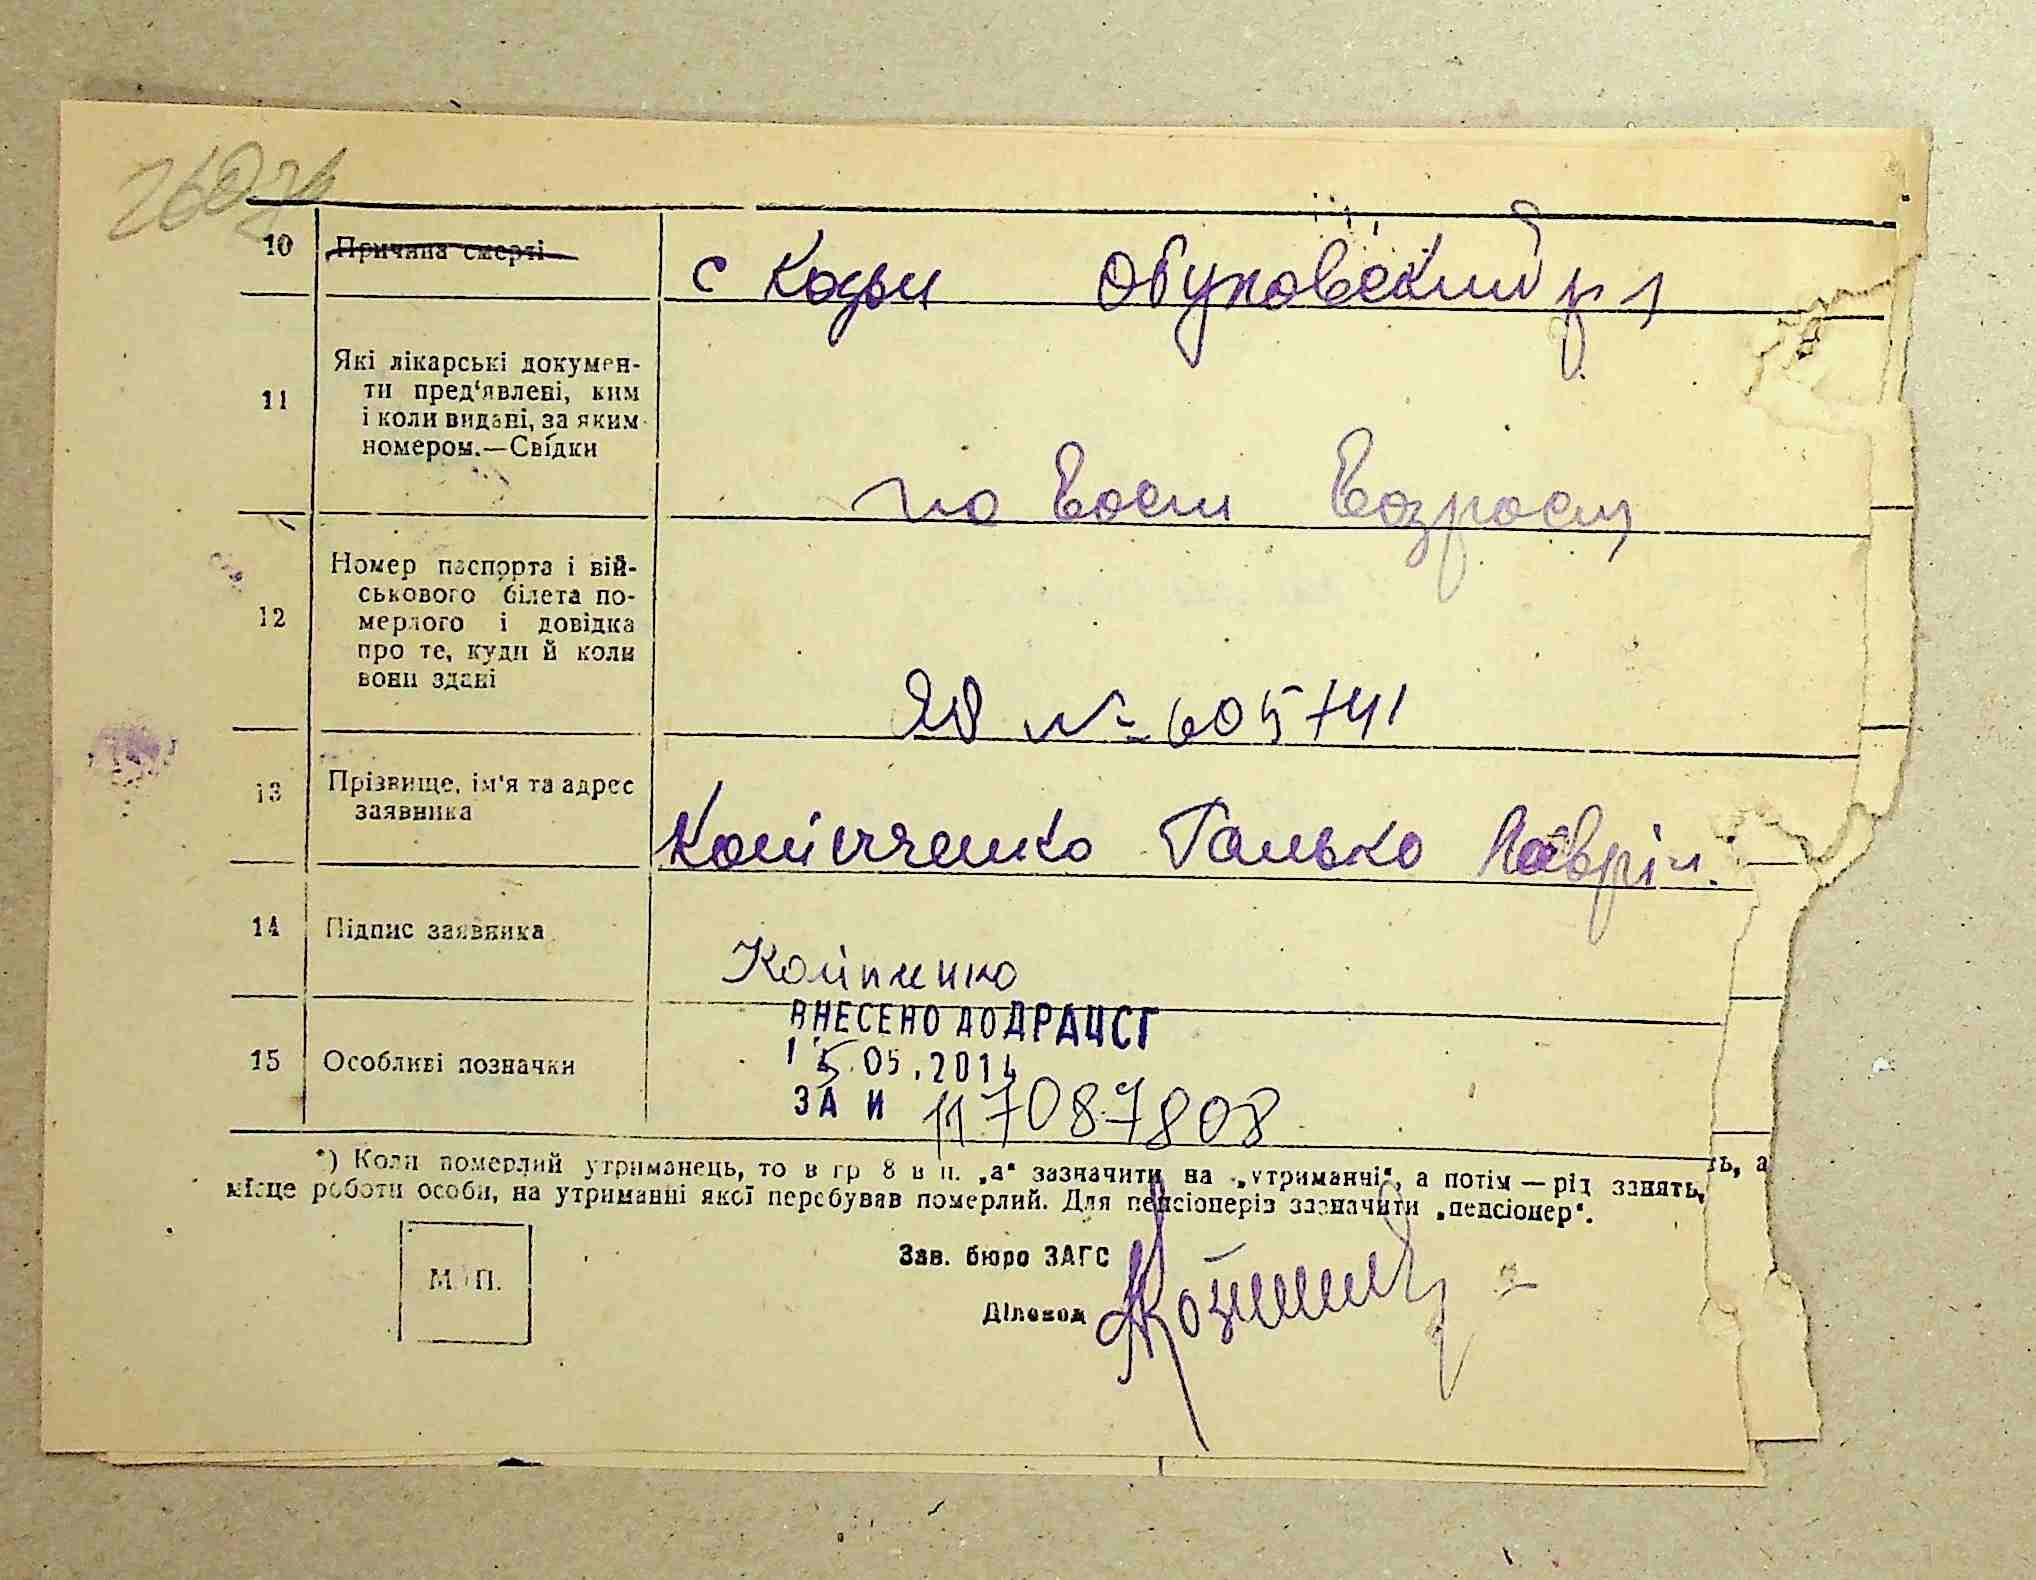 10 Причина смерті
с Кодри Обуховский р
11 Які лікарські докумен-
ти пред'явлені, ким
і коли видані, за яким
номером.—Свідки
по
12 Номер паспорта і вій-
ськового білета по-
мерлого і довідка
про те, куди й коли
вони здані
№ 605741
13 Прізвище, ім'я та адрес
заявника
Ганько
14 Підпис заявника
ВНЕСЕНО ДО ДРАЦСГ
15 Особливі позначки
15.05.2014
ЗА И 117087808
*) Коли померлий утриманець, то в гр 8 в п. „а“ зазначити на „утриманні“, а потім — рід занять,
місце роботи особи, на утриманні якої перебував померлий. Для пенсіонерів зазначити „пенсіонер“.
Зав. бюро ЗАГС
М. П.
Діловод